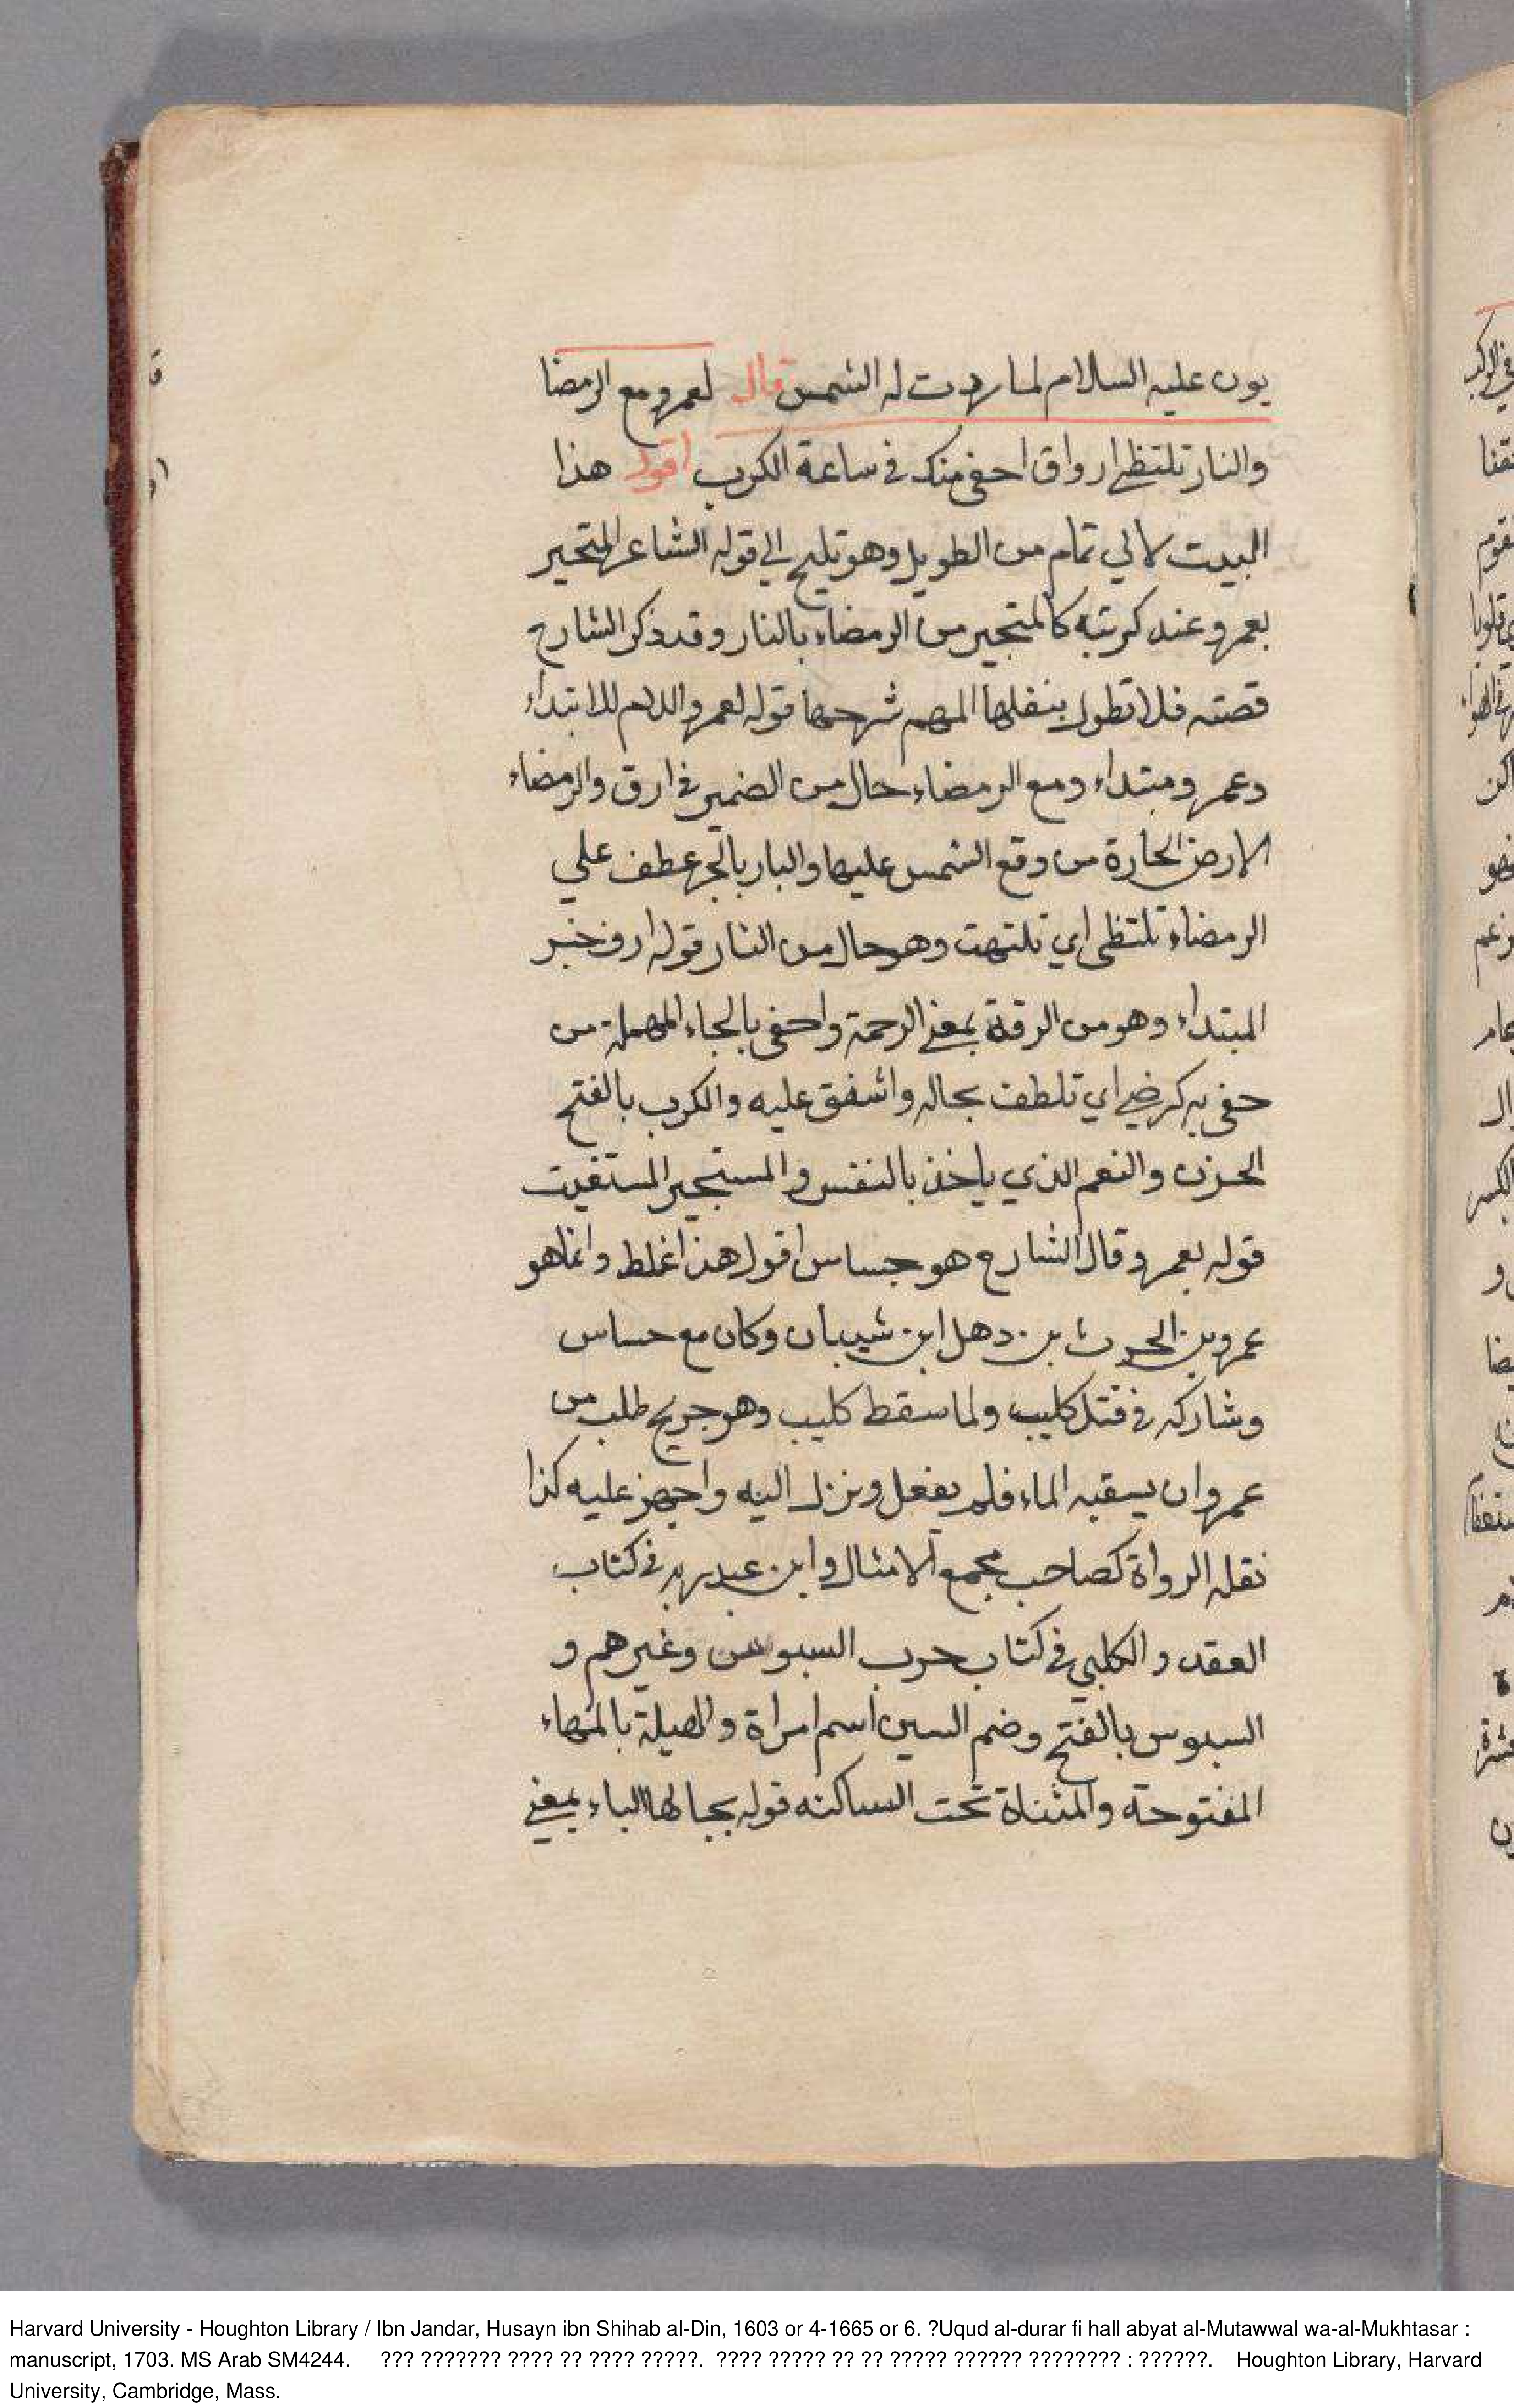 يون عليه السلام لما ردت له الشمس قال لعمرو مع الرمضا
والنار تلتظى ارواق احفى منك في ساعة الكرب اقول هذا
البيت لابي تمام من الطويل وهو تليح الي قوله الشاعر المتجير
بعمرو عند كربته كالمتجير من الرمضاء بالنار وقد ذكر الشارح
قصته فلا تطول بنقلها المهم شرحها قوله لعمرو اللام للابتداء
وعمرو مبتداء ومع الرمضاء حال من الضمير في ارق والرمضاء
الارض الحارة من وقع الشمس عليها والبار بالجر عطف علي
الرمضاء تلتظى اي تلتهت وهو حال من النار قوله ارق خبر
المبتداء وهو من الرقة بمعني الرحمة واحفى بالحاء المهملة من
حفي به كرضي اي تلطف بحاله واشفق عليه والكرب بالفتح
الحزن والنعم الذي ياخذ بالنفس والمستجير المستغيث
قوله بعمرو قال الشارح هو جساس اقول هذا غلط وانما هو
عمرو بن الحرث بن دهل ابن شيبان وكان مع حساس
وشاركه في قتل كليب ولما سقط كليب وهو جريح طلب من
عمرو ان يسقيه الماء فلم يفعل ونزل اليه واجهز عليه كذا
نقله الرواة كصاحب مجمع الامثال وابن عبد ربه في كتاب
العقد والكلبي في كتاب حرب السبوس وغيرهم و
السبوس بالفتح وضم السين اسم امراة والهيلة بالهاء
المفتوحة والمثناة تحت الساكنه قوله بجالها الباء بمعني
Harvard University - Houghton Library / Ibn Jandar, Husayn ibn Shihab al-Din, 1603 or 4-1665 or 6. ?Uqud al-durar fi hall abyat al-Mutawwal wa-al-Mukhtasar :
manuscript, 1703. MS Arab SM4244. ??? ??????? ???? ?? ???? ?????. ???? ????? ?? ?? ????? ?????? ???????? : ??????. Houghton Library, Harvard
University, Cambridge, Mass.